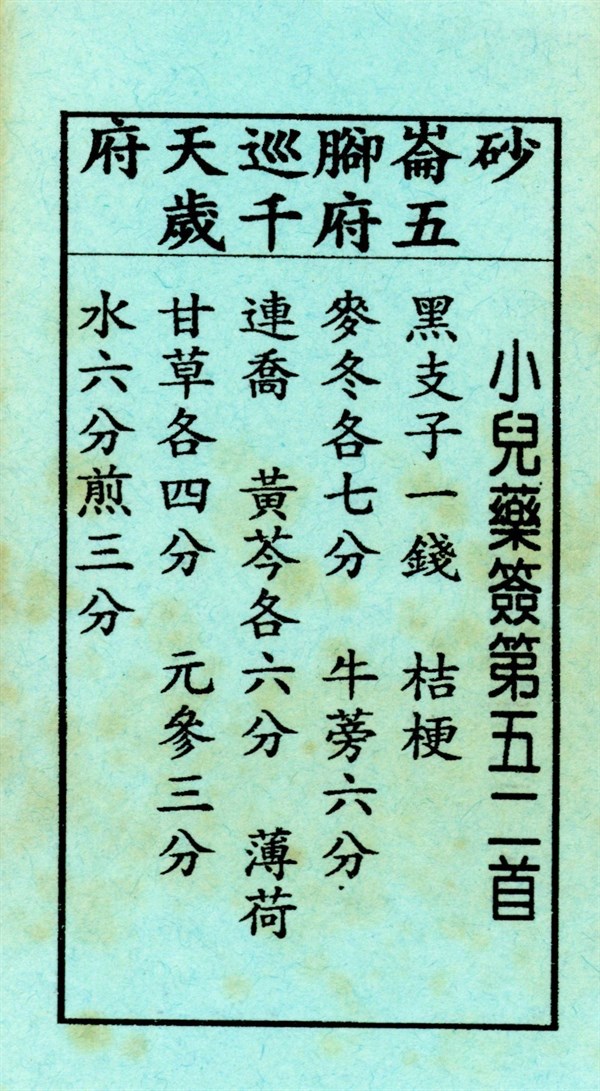 砂崙腳巡天府
五府千歲
小兒藥簽第五二首
黑支子一錢　桔梗
麥冬各七分　牛蒡六分
連喬　黃芩各六分　薄荷
甘草各四分　元參三分
水六分煎三分